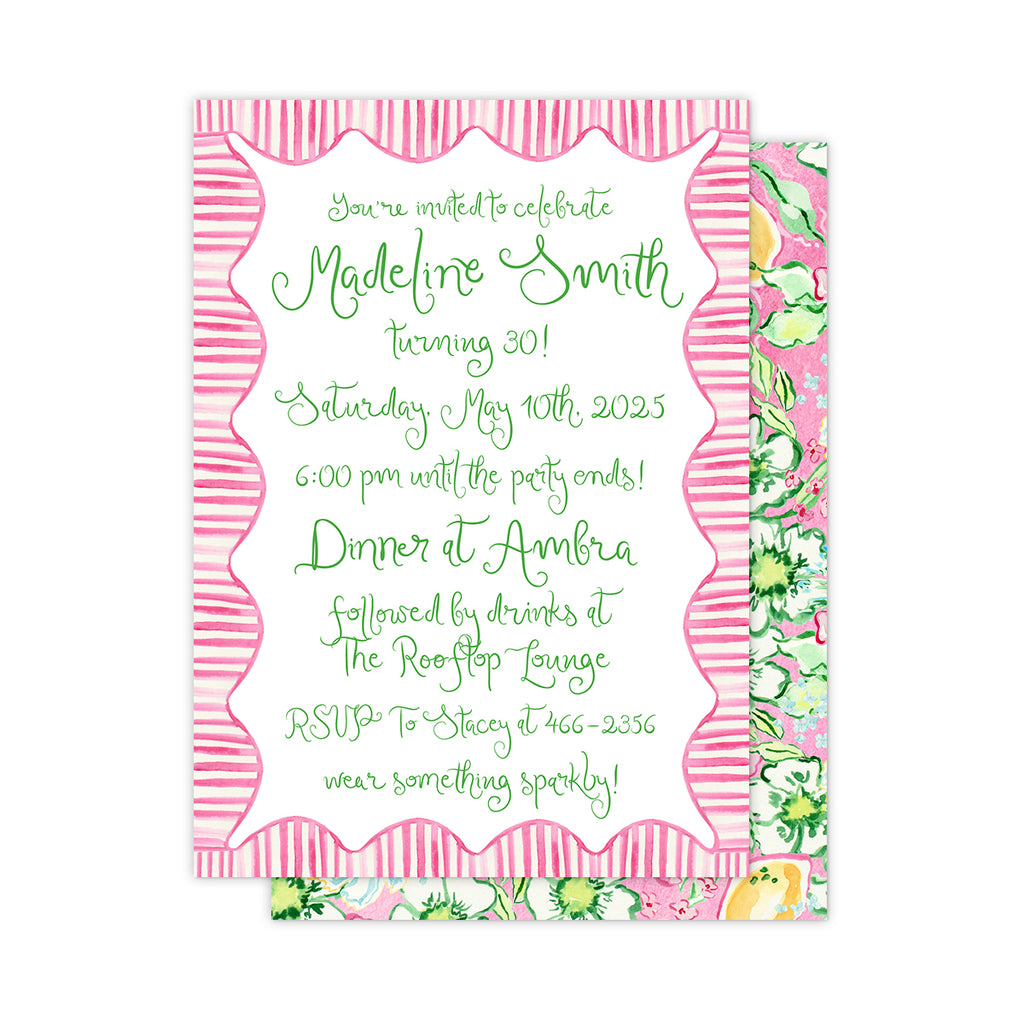 You're invited to celebrate
Madeline Smith
turning 30!
Saturday, May 10th, 2025
6:00 pm until the party ends!
Dinner at Ambra
followed by drinks at
The Rooftop Lounge
RSVP To Stacey at 466-2356
wear something sparkly!